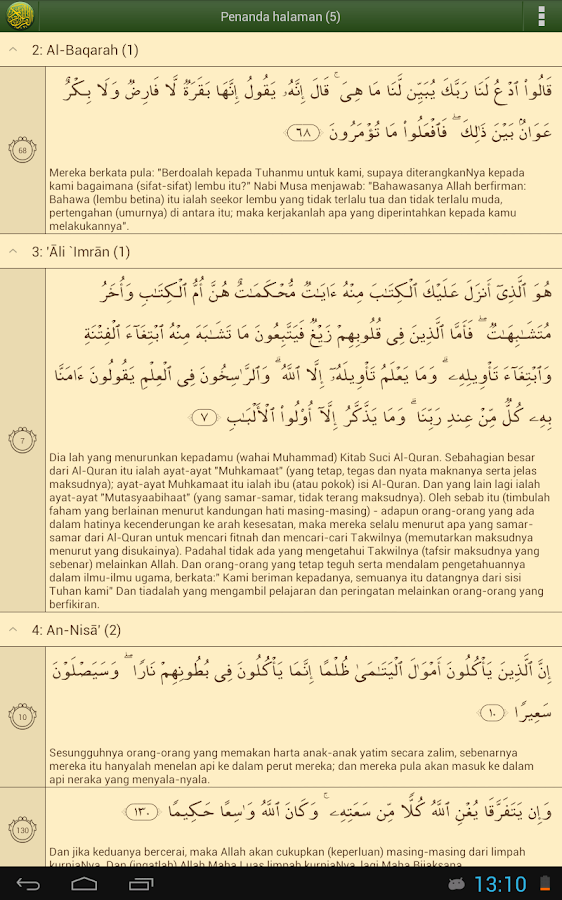 Penanda halaman (5)
2: Al-Baqarah (1)
قَالُوا۟ ٱدْعُ لَنَا رَبَّكَ يُبَيِّن لَّنَا مَا هِىَ ۚ قَالَ إِنَّهُۥ يَقُولُ إِنَّهَا بَقَرَةٌ لَّا فَارِضٌ وَلَا بِكْرٌ
عَوَانٌۢ بَيْنَ ذَٰلِكَ ۖ فَٱفْعَلُوا۟ مَا تُؤْمَرُونَ ﴿٦٨﴾
68
Mereka berkata pula: "Berdoalah kepada Tuhanmu untuk kami, supaya diterangkanNya kepada
kami bagaimana (sifat-sifat) lembu itu?" Nabi Musa menjawab: "Bahawasanya Allah berfirman:
Bahawa (lembu betina) itu ialah seekor lembu yang tidak terlalu tua dan tidak terlalu muda,
pertengahan (umurnya) di antara itu; maka kerjakanlah apa yang diperintahkan kepada kamu
melakukannya".
3: 'Āli `Imrān (1)
هُوَ ٱلَّذِىٓ أَنزَلَ عَلَيْكَ ٱلْكِتَٰبَ مِنْهُ ءَايَٰتٌ مُّحْكَمَٰتٌ هُنَّ أُمُّ ٱلْكِتَٰبِ وَأُخَرُ
مُتَشَٰبِهَٰتٌ ۖ فَأَمَّا ٱلَّذِينَ فِى قُلُوبِهِمْ زَيْغٌ فَيَتَّبِعُونَ مَا تَشَٰبَهَ مِنْهُ ٱبْتِغَآءَ ٱلْفِتْنَةِ
وَٱبْتِغَآءَ تَأْوِيلِهِۦ ۗ وَمَا يَعْلَمُ تَأْوِيلَهُۥٓ إِلَّا ٱللَّهُ ۗ وَٱلرَّٰسِخُونَ فِى ٱلْعِلْمِ يَقُولُونَ ءَامَنَّا
بِهِۦ كُلٌّ مِّنْ عِندِ رَبِّنَا ۗ وَمَا يَذَّكَّرُ إِلَّآ أُو۟لُوا۟ ٱلْأَلْبَٰبِ ﴿٧﴾
7
Dia lah yang menurunkan kepadamu (wahai Muhammad) Kitab Suci Al-Quran. Sebahagian besar
dari Al-Quran itu ialah ayat-ayat "Muhkamaat" (yang tetap, tegas dan nyata maknanya serta jelas
maksudnya); ayat-ayat Muhkamaat itu ialah ibu (atau pokok) isi Al-Quran. Dan yang lain lagi ialah
ayat-ayat "Mutasyaabihaat" (yang samar-samar, tidak terang maksudnya). Oleh sebab itu (timbulah
faham yang berlainan menurut kandungan hati masing-masing) - adapun orang-orang yang ada
dalam hatinya kecenderungan ke arah kesesatan, maka mereka selalu menurut apa yang samar-
samar dari Al-Quran untuk mencari fitnah dan mencari-cari Takwilnya (memutarkan maksudnya
menurut yang disukainya). Padahal tidak ada yang mengetahui Takwilnya (tafsir maksudnya yang
sebenar) melainkan Allah. Dan orang-orang yang tetap teguh serta mendalam pengetahuannya
dalam ilmu-ilmu ugama, berkata:" Kami beriman kepadanya, semuanya itu datangnya dari sisi
Tuhan kami" Dan tiadalah yang mengambil pelajaran dan peringatan melainkan orang-orang yang
berfikiran.
4: An-Nisā' (2)
إِنَّ ٱلَّذِينَ يَأْكُلُونَ أَمْوَٰلَ ٱلْيَتَٰمَىٰ ظُلْمًا إِنَّمَا يَأْكُلُونَ فِى بُطُونِهِمْ نَارًا ۖ وَسَيَصْلَوْنَ
سَعِيرًا ﴿١٠﴾
10
Sesungguhnya orang-orang yang memakan harta anak-anak yatim secara zalim, sebenarnya
mereka itu hanyalah menelan api ke dalam perut mereka; dan mereka pula akan masuk ke dalam
api neraka yang menyala-nyala.
وَإِن يَتَفَرَّقَا يُغْنِ ٱللَّهُ كُلًّا مِّن سَعَتِهِۦ ۚ وَكَانَ ٱللَّهُ وَٰسِعًا حَكِيمًا ﴿١٣٠﴾
130
Dan jika keduanya bercerai, maka Allah akan cukupkan (keperluan) masing-masing dari limpah
kurniaNya. Dan (ingatlah) Allah Maha Luas limpah kurniaNya, lagi Maha Bijaksana.
13:10